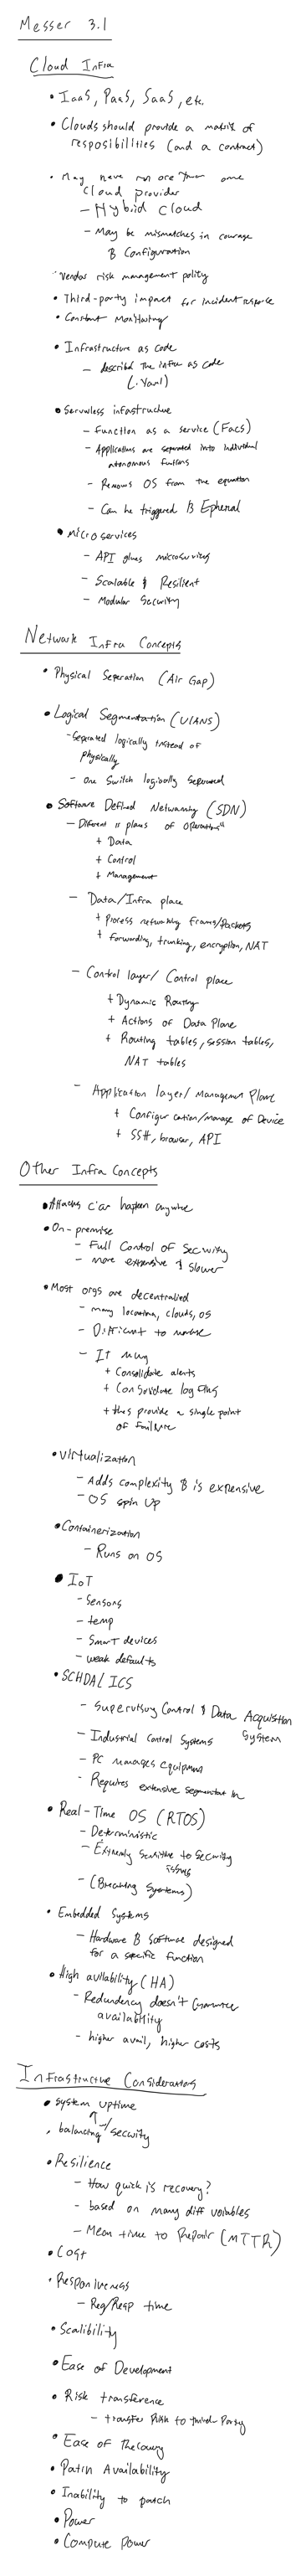 Messer 3.1
Cloud Infra
• IaaS, PaaS, SaaS, etc.
• Clouds should provide a matrix of
resposibilities (and a contract)
• May have run ore than one
cloud provider
- Hybrid cloud
- May be mismatches in courage
& Configuration
• Vendor risk management polity
• Third-party impact for incident respose
• Constant Monitoring
• Infrastructure as code
- described the infra as code
(.Yaml)
• Serverless infastructure
- Function as a service (Faas)
- Applications are separated into individual
autonomous funtions
- Removes OS from the equation
- Can be triggered & Ephemal
• Microservices
- API glues microservices
- Scalable & Resilient
- Modular Security
Network Infra Concepts
• Physical Seperation (Air Gap)
• Logical Segmentation (VLANS)
- Seperated logically instead of
physically
- one switch logically Seperated
• Software Defined Networking (SDN)
- Diferent "planes of operations"
+ Data
+ Control
+ Management
- Data/Infra place
+ Process networking frams/packets
+ Forwarding, trunking, encryption, NAT
- Control layer/ Control place
+ Dynamic Routing
+ Actions of Data Plane
+ Routing tables, session tables,
NAT tables
- Application layer/ Management Plane
+ Configuration/manage of Device
+ SSH, browser, API
Other Infra Concepts
• Attacks can happen anywhere
• On-premise
- Full Control of Security
- more expensive & Slower
• Most orgs are decentralized
- many location, clouds, OS
- Difficult to
- It
+ Consolidate alerts
+ Consolidate log files
+ thus provide a single point
of failure
• Virtualization
- Adds complexity & is expensive
- OS spin up
• Containerization
- Runs on OS
• IoT
- Sensors
- temp
- Smart devices
- weak defaults
• SCADA/ICS
- Supervisory Control & Data Acquistion
System
- Industrial Control Systems
- PC manages equipment
- Requires extensive segmentation
• Real-Time OS (RTOS)
- Deterministic
- Extremly sensitive to security
issues
- (Breaking Systems)
• Embedded Systems
- Hardware & Software designed
for a specific function
• High avilability (HA)
- Redundency doesn't Guarantee
availability
- higher avail, higher costs
Infrastructure Considerations
• System uptime
• balancing security
• Resilience
- How quick is recovery?
- based on many diff variables
- Mean time to Repair (MTTR)
• Cost
• Responiveness
- Req/Resp time
• Scalibility
• Ease of Development
• Risk transference
- transfer Risk to third-Party
• Ease of Recovery
• Patch Availability
• Inability to patch
• Power
• Compute Power